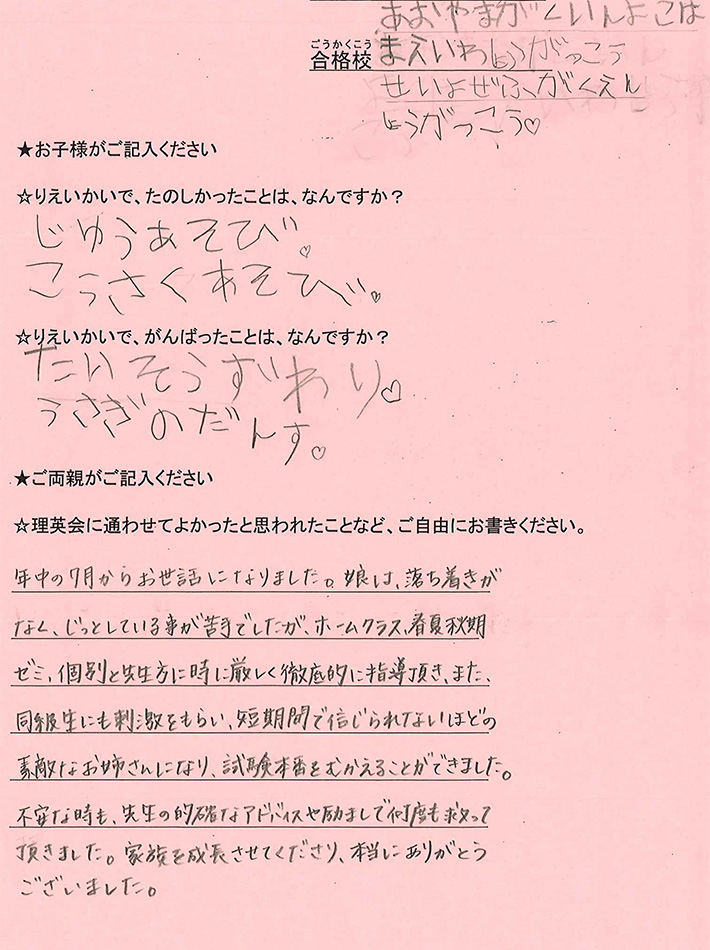 あおやまがくいんよこは
ごうかくこう
合格校 まえいわしょうがっこう
せいよぜふがくえん
しょうがっこう♡
★お子様がご記入ください
☆りえいかいで、たのしかったことは、なんですか？
じゆうあそび。♡
こうさくあそび。
☆りえいかいで、がんばったことは、なんですか？
たいそうずわり♡
うさぎのだんす。♡
★ご両親がご記入ください
☆理英会に通わせてよかったと思われたことなど、ご自由にお書きください。
年中の7月からお世話になりました。娘は、落ち着きが
なく、じっとしている事が苦手でしたが、ホームクラス、春夏秋期
ゼミ、個別と先生方に時に厳しく徹底的に指導頂き、また、
同級生にも刺激をもらい、短期間で信じられないほどの
素敵なお姉さんになり、試験本番をむかえることができました。
不安な時も、先生の的確なアドバイスや励ましで何度も救って
頂きました。家族を成長させてくださり、本当にありがとう
ございました。